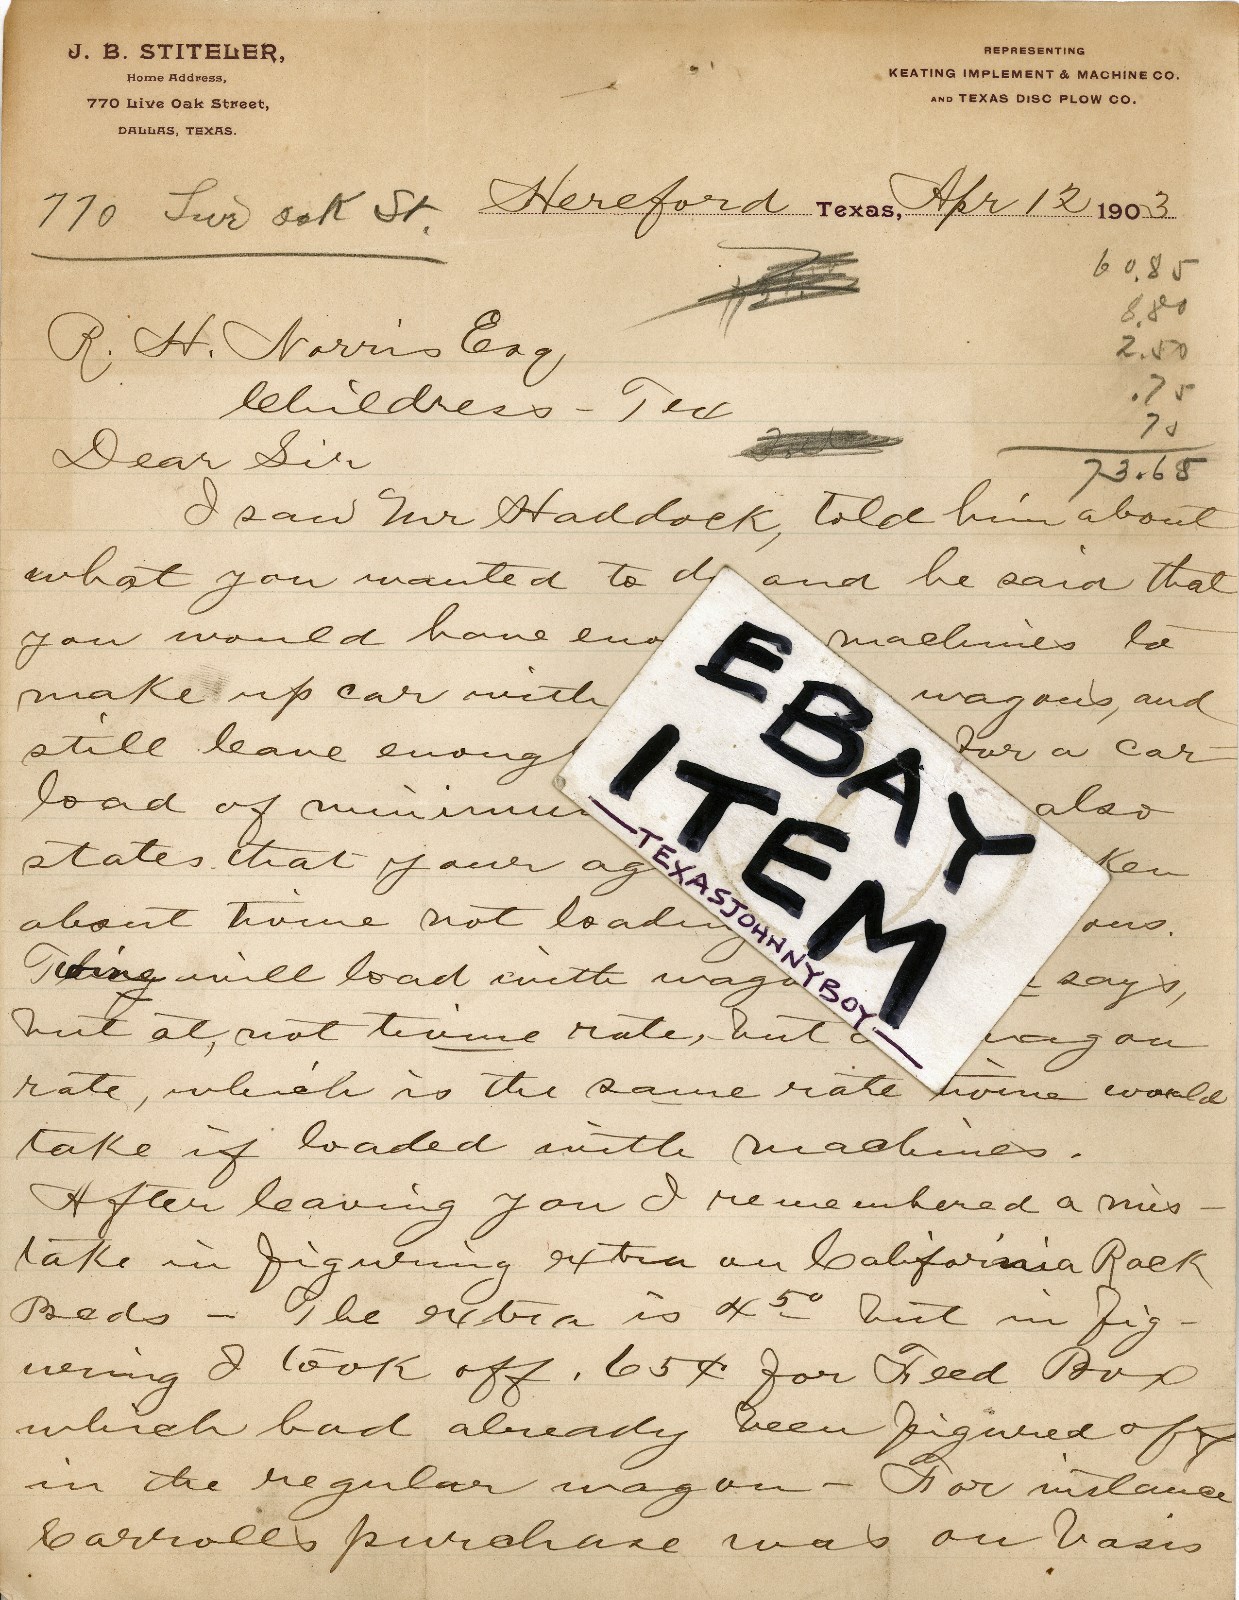 J. B. STITELER,
Home Address,
770 Live Oak Street,
DALLAS, TEXAS.
REPRESENTING
KEATING IMPLEMENT & MACHINE CO.
AND TEXAS DISC PLOW CO.
770 Liv oak St.
Hereford Texas, Apr 12 1903
60.85
8.80
2.50
.75
75
73.65
R. H. Norris Esq
Childress - Tex
Dear Sir
I saw Mr Haddock, told him about
what you wanted to do and he said that
you would have eno machines to
make up car with wagons, and
still leave enoug for a car-
load of minimu also
states that your ag ken
about twine not loading ons.
will load with wago says,
but at, not twine rate, but wagon
rate, which is the same rate twine would
take if loaded with machines.
After leaving you I remembered a mis-
take in figuring extra on California Rack
Beds - The extra is 4 50 but in fig-
uring I took off .65¢ for Feed Box
which had already been figured off
in the regular wagon - For instance
Carroll's purchase was on basis
EBAY
ITEM
TEXASJOHNNYBOY